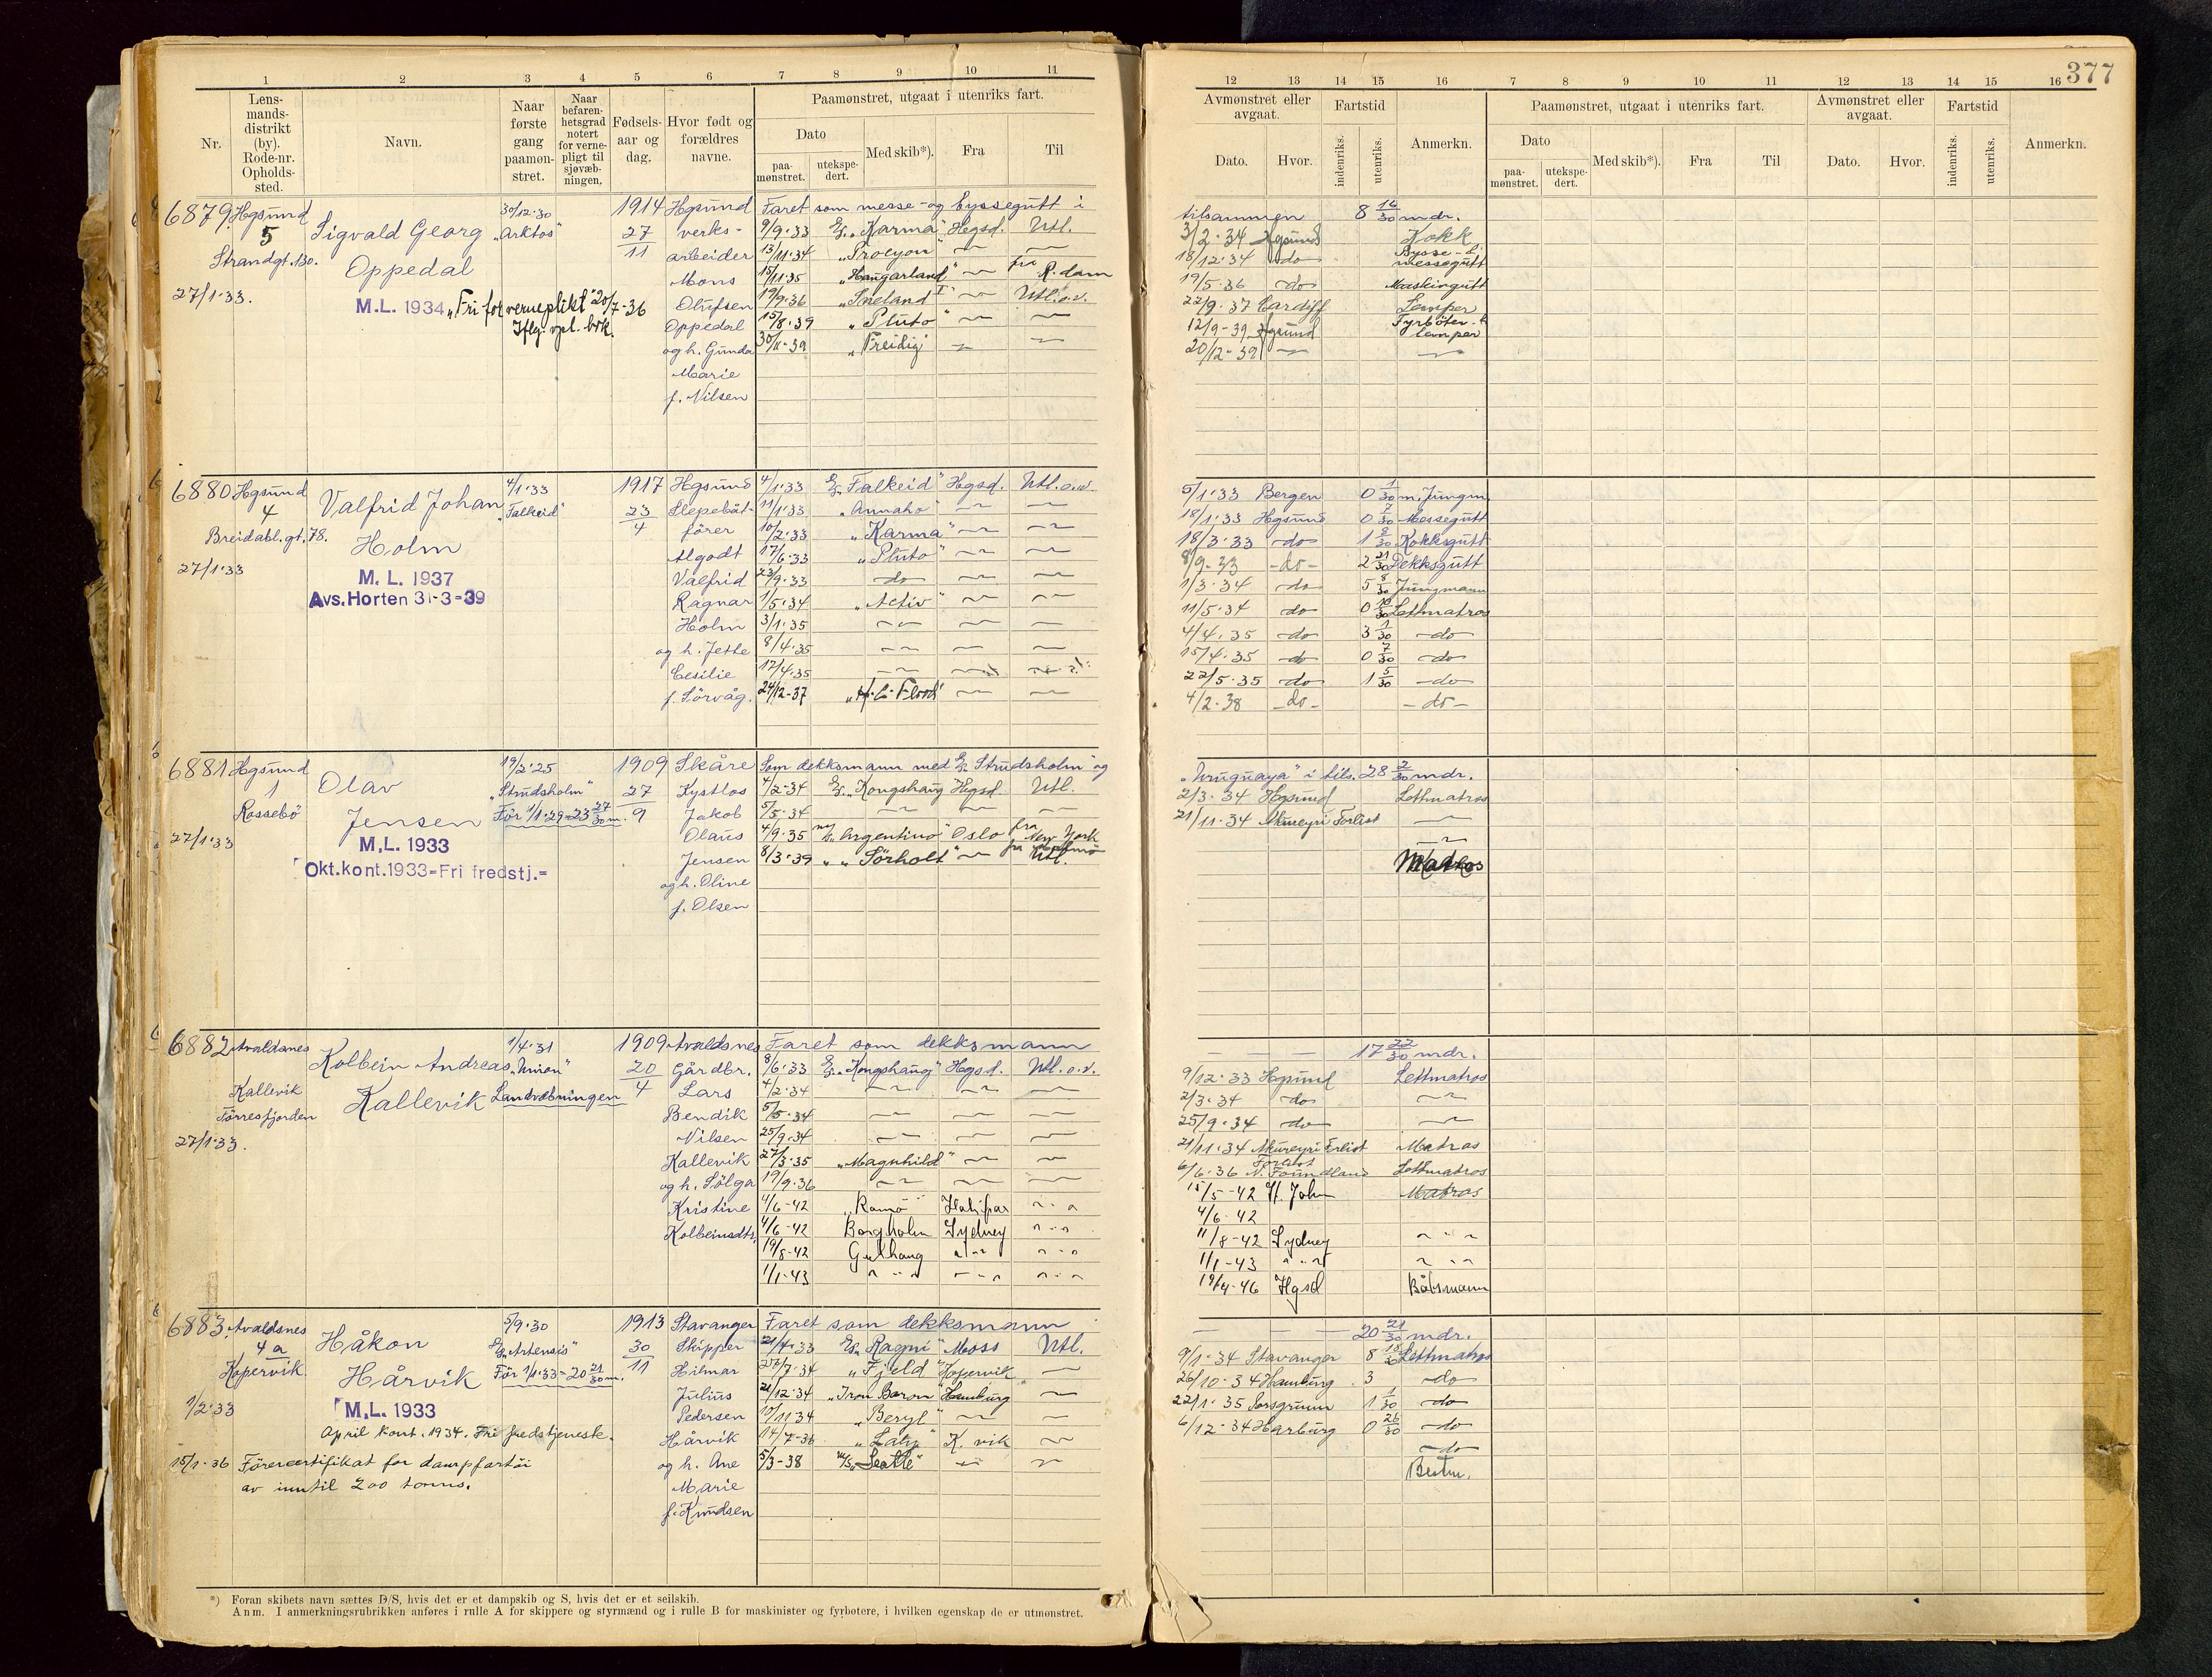 377
1 2 3 4 5 6 7 8 9 10 11
12 13 14 15 16 7 8 9 10 11 12 13 14 15 16
Nr.
Lens-
mands-
distrikt
(by).
Rode-nr.
Opholds-
sted.
Navn.
Naar
første
gang
paamøn-
stret.
Naar
befaren-
hetsgrad
notert
for verne-
pligt til
sjøvæb-
ningen.
Fødsels-
aar og
dag.
Hvor født og
forældres
navne.
Paamønstret, utgaat i utenriks fart.
Dato
paa-
mønstret.
utekspe-
dert.
Med skib*).
Fra
Til
Avmønstret eller
avgaat.
Dato.
Hvor.
Fartstid
indenriks.
utenriks.
Anmerkn.
Paamønstret, utgaat i utenriks fart.
Dato
paa-
mønstret.
utekspe-
dert.
Med skib*).
Fra
Til
Avmønstret eller
avgaat.
Dato.
Hvor.
Fartstid
indenriks.
utenriks.
Anmerkn.
6879. Hgsund
5
Strandgt. 130.
27/1·33.
Sigvald Georg
Oppedal
M.L. 1934 "Fri for verneplikt" 20/7-36
Iflg. vpl. bok.
30/12·30
"Arktos"
1914
27
11
Hgsund
verks-
arbeider
Mons
Olufsen
Oppedal
og h. Gunda
Marie
f. Nilsen
Faret som messe- og byssegutt i
tilsammen 8 14/30 mdr.
9/9·33 "Karma" Hgsd. Utl.
3/2·34 Hgsund Kokk
13/11·34 "Procyon"
18/12·34 do Bysse- &
messegutt
15/11·35 "Haugarland" fra R.dam
19/5·36 do Maskingutt
19/9·36 "Sneland I" Utl. o.v.
22/9·37 Cardiff Lemper
15/8·39 "Pluto"
12/9-39 Hgsund Fyrbøter &
lemper
30/11-39 "Freidig"
20/12-39
6880 Hgsund
4
Breidabl.gt. 78.
27/1·33
Valfrid Johan
Holm
M. L. 1937
Avs. Horten 31-3-39
4/1·33
"Falkeid"
1917
23
4
Hgsund
Slepebåt-
fører
Algodt
Valfrid
Ragnar
Holm
og h. Jette
Cesilie
f. Sørvåg.
4/1·33 "Falkeid" Hgsd. Utl. o.v.
5/1·33 Bergen 0 1/30 m. Jungm.
11/1·33 "Annaho"
18/1·33 Hgsund 0 7/30 Messegutt
10/2·33 "Karma"
18/3·33 do 1 8/30 Kokksgutt
17/6·33 "Pluto"
8/9-33 -do- 2 21/30 Dekksgutt
23/9·33 do
1/3·34 do 5 8/30 Jungmann
1/5·34 "Activ"
11/5·34 do 0 10/30 Lettmatros
3/1·35
4/4·35 do 3 1/30 do
8/4·35
15/4·35 do 0 7/30 do
17/4·35
22/5·35 do 1 5/30 do
24/12-37 "H. C. Flood"
4/2·38 -do- -do-
6881 Hgsund
1
Rossebø
27/1·33
Olav
Jensen
M.L. 1933
Okt.kont.1933=Fri fredstj.=
19/2·25
"Strudsholm"
Før 1/1·29=23 27/30 m.
1909
27
9
Skåre
Kystlos
Jakob
Olaus
Jensen
og h. Oline
f. Olsen
Som dekksmann med "Strudsholm" og
"Uruguaya" i tils. 28 2/30 mdr.
4/2·34 "Kongshaug" Hgsd. Utl.
2/3·34 Hgsund Lettmatros
5/5·34
21/11·34 Akureyri Forlist
4/9·35 "Argentino" Oslo fra
New York
8/3·39 "Sørholt" Utl.
Matros
6882 Avaldsnes
Kallevik
Førresfjorden
27/1·33.
Kolbein Andreas
Kallevik
1/4·31
"Union"
Landvebningen
1909
20
4
Avaldsnes
Gårdbr.
Lars
Bendik
Nilsen
Kallevik
og h. Sølga
Kristine
Kolbeinsdtr.
Faret som dekksmann
17 22/30 mdr.
8/6·33 "Kongshaug" Hgsd. Utl. o.v.
9/12·33 Hgsund Lettmatros
4/2·34
2/3·34 do
5/5·34
25/9·34 do
25/9·34
21/11·34 Akureyri Forlist Matros
27/3·35 "Magnhild"
6/6·36 Forlist N. Foundland Lettmatros
19/9·36
15/5-42 St. John Matros
4/6-42 "Ramø" Halifax
4/6-42
4/6-42 Borgholm Sydney
11/8-42 Sydney
19/8-42 Gulhaug
1/1-43
1/1-43
19/4-46 Hgsd Båtsmann
6883. Avaldsnes
4 a
Kopervik
1/2·33
Håkon
Hårvik
M.L. 1933
April kont. 1934. Fri fredstjeneste.
15/1·36 Førercertifikat for dampfartøi
av inntil 200 tonns.
5/9·30
"Artensis"
Før 1/1·33=20 21/30 m.
1913
30
11
Stavanger
Skipper
Hilmar
Julius
Pedersen
Hårvik
og h. Ane
Marie
f. Knudsen
Faret som dekksmann
20 21/30 mdr.
21/4·33 "Ragni" Moss Utl.
9/1·34 Stavanger 8 18/30 Lettmatros
27/7·34 "Fjeld" Kopervik
26/10·34 Hamburg 3 do
21/12·34 "Iron Baron" Hamburg
22/1·35 Porsgrunn 1 1/30 do
10/11 34 "Beryl"
6/12·34 Harburg 0 26/30 do
14/7-36 K. vik
do
5/3-38 M/S "Seattle"
Bestm.
*) Foran skibets navn sættes D/S, hvis det er et dampskib og S, hvis det er et seilskib.
Anm. I anmerkningsrubrikken anføres i rulle A for skippere og styrmænd og i rulle B for maskinister og fyrbøtere, i hvilken egenskap de er utmønstret.